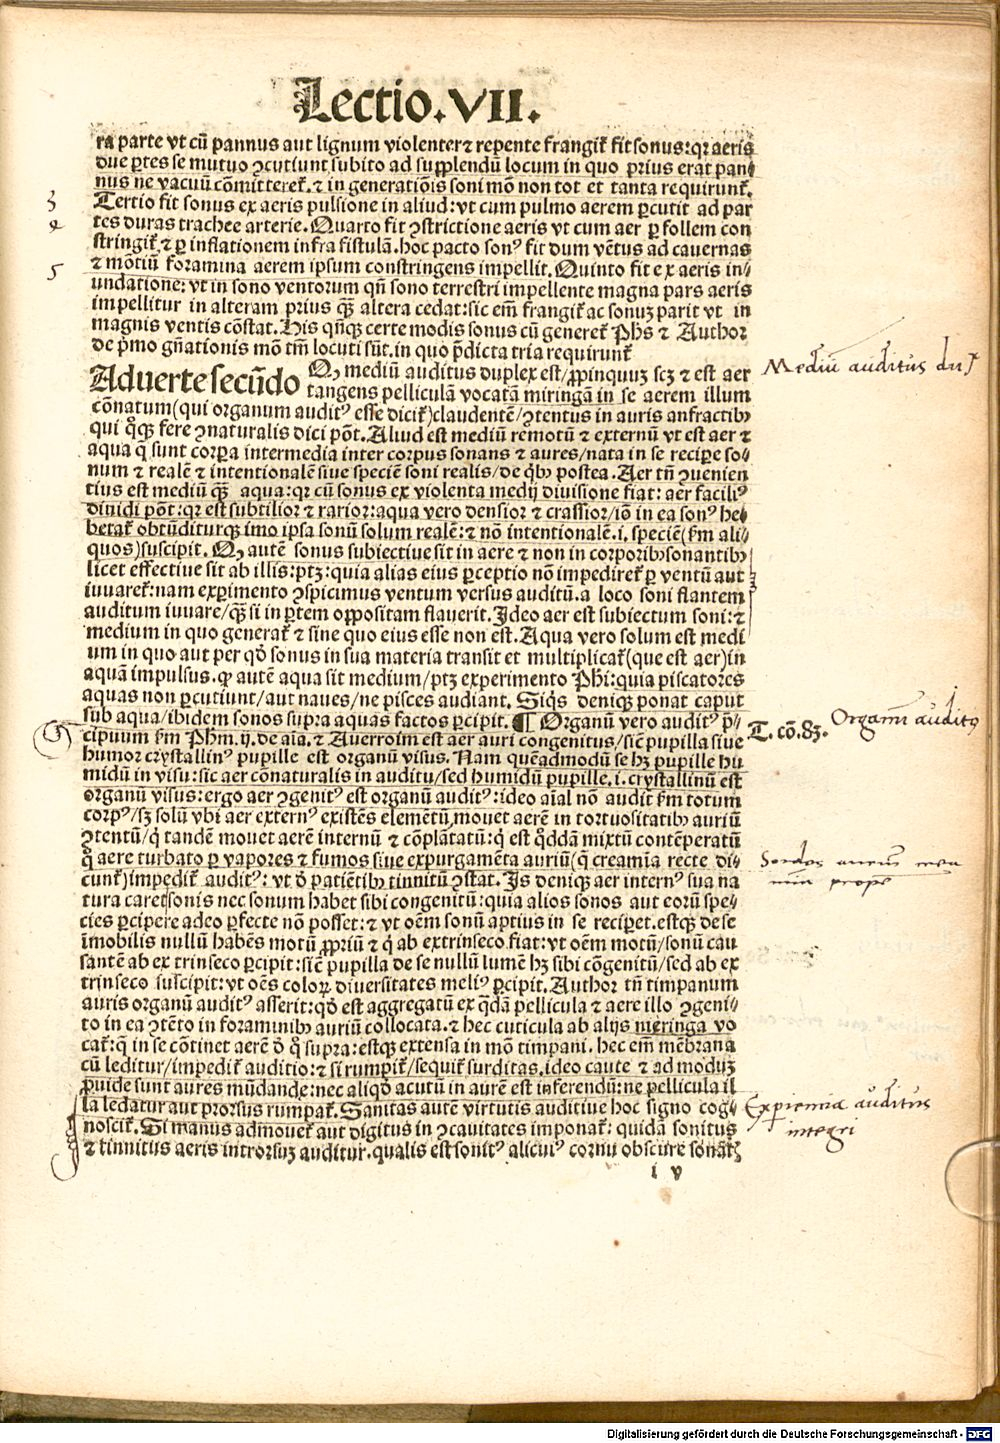 Lectio.VII.
ra parte vt cū pannus aut lignum violenter ⁊ repente frangit᷑ fit sonus: qꝛ aeris
due ꝑtes se mutuo ꝯcutiunt subito ad suppl̄endū locum in quo prius erat pan⸗
nus ne vacuū cōmitteret᷑. ⁊ in generatiōis soni mō non tot et tanta requirunt᷑.
3
Tertio fit sonus ex aeris pulsione in aliud: vt cum pulmo aerem ꝑcutit ad par
4
tes duras trachee arterie. Quarto fit ꝯstrictione aeris vt cum aer ꝑ follem con
stringit᷑, ⁊ ꝑ inflationem infra fistulā. hoc pacto sonꝰ fit dum vētus ad cauernas
5
⁊ mōtiū foramina aerem ipsum constringens impellit. Quinto fit ex aeris in⸗
undatione: vt in sono ventorum qn̄ sono terrestri impellente magna pars aeris
impellitur in alteram prius qꝫ̄ altera cedat: sic em̄ frangit᷑ ac sonuꝫ parit vt in
magnis ventis cōstat. His qn̄qꝫ certe modis sonus cū generet᷑ Ph̄s ⁊ Author
de p̄mo gn̄ationis mō tm̄ locuti sūt. in quo p̄dicta tria requirunt᷑
Mediū auditus
Aduerte secūdo Qꝫ mediū auditus duplex est/ ꝓpinquuꝫ scꝫ ⁊ est aer
tangens pelliculā vocatā miringā in se aerem illum
cōnatum (qui organum auditꝰ esse dicit᷑) claudentē/ ꝯtentus in auris anfractibꝰ
qui qͦqꝫ fere ꝯnaturalis dici pōt. Aliud est mediū remotū ⁊ externū vt est aer ⁊
aqua q̄ sunt corꝑa intermedia inter corpus sonans ⁊ aures/ nata in se reciꝑe so⸗
num ⁊ realē ⁊ intentionalē siue speciē soni realis/ de qͥbꝰ postea. Aer tn̄ ꝯuenien
tius est mediū qꝫ̄ aqua: qꝛ cū sonus ex violenta medij diuisione fiat: aer faciliꝰ
diuidi pōt: qꝛ est subtilior ⁊ rarior: aqua vero densior ⁊ crassior/ iō in ea sonꝰ he⸗
betat᷑ obtūditurqꝫ imo ipsa sonū solum realē: ⁊ nō intentionalē .i. speciē (ẜm ali⸗
quos) suscipit. Qꝫ autē sonus subiectiue sit in aere ⁊ non in corporibꝰ sonantibꝰ
licet effectiue sit ab illis: ptꝫ: quia alias eius ꝑceptio nō impediret᷑ ꝑ ventū aut
iuuaret᷑: nam exꝑimento ꝯspicimus ventum versus auditū. a loco soni flantem
auditum iuuare/ qꝫ̄ si in ꝑtem oppositam flauerit. Ideo aer est subiectum soni: ⁊
medium in quo generat᷑ ⁊ sine quo eius esse non est. Aqua vero solum est medi
um in quo aut per qd̄ sonus in sua materia transit et multiplicat᷑ (que est aer) in
aquā impulsus. qꝙ autē aqua sit medium/ ptꝫ experimento Ph̄i: quia piscatores
aquas non ꝑcutiunt/ aut naues/ ne pisces audiant. Siqͥs deniqꝫ ponat caput
sub aqua/ ibidem sonos supra aquas factos ꝑcipit. ¶ Organū vero auditꝰ p̄⸗
Organū auditus
T. cō. 83.
cipuum ẜm Ph̄m .ij. de aīa. ⁊ Auerroim est aer auri congenitus/ sic̄ pupilla siue
humor crystallinꝰ pupille est organū visus. Nam quēadmodū se hꝫ pupille hu
midū in visu: sic aer cōnaturalis in auditu/ sed humidū pupille .i. crystallinū est
organū visus: ergo aer ꝯgenitꝰ est organū auditꝰ: ideo aīal nō audit ẜm totum
corpꝰ/ sꝫ solū vbi aer externꝰ existēs elemētū, mouet aerē in tortuositatibꝰ auriū
ꝯtentū/ qͥ tandē mouet aerē internū ⁊ cōplātatū: qͥ est qͦddā mixtū contēperatū
qͦ aere turbato ꝑ vapores ⁊ fumos siue expurgamēta auriū (q̄ creamīa recte di⸗
cunt᷑) impedit᷑ auditꝰ: vt ꝺ patiētibꝰ tinnitū ꝯstat. Is deniqꝫ aer internꝰ sua na
tura caret sonis nec sonum habet sibi congenitū: quia alios sonos aut eorū spe⸗
cies ꝑcipere adeo ꝑfecte nō posset: ⁊ vt oēm sonū aptius in se reciꝑet. estqꝫ de se
īmobilis nullū habēs motū ꝓpriū ⁊ qͥ ab extrinseco fiat: vt oēm motū/ sonū cau
santē ab extrinseco ꝑcipit: sic̄ pupilla de se nullū lumē hꝫ sibi cōgenitū/ sed ab ex
trinseco suscipit: vt oēs coloꝝ diuersitates meliꝰ ꝑcipit. Author tn̄ timpanum
auris organū auditꝰ asserit: qd̄ est aggregatū ex qͣdā pellicula ⁊ aere illo ꝯgeni⸗
to in ea ꝯtēto in foraminibꝰ auriū collocata. ⁊ hec cuticula ab alijs meringa vo
cat᷑: q̄ in se cōtinet aerē ꝺ qͦ supra: estqꝫ extensa in mō timpani. hec em̄ mēbrana
cū leditur/ impedit᷑ auditio: ⁊ si rumpit᷑/ sequit᷑ surditas. ideo caute ⁊ ad moduꝫ
ꝓuide sunt aures mūdande: nec aliqd̄ acutū in aurē est inferendū: ne pellicula il
Expieneia auditus
integri
la ledatur aut prorsus rumpat᷑. Sanitas autē virtutis auditiue hoc signo cog⸗
noscit᷑. Si manus admouet᷑ aut digitus in ꝯcauitates imponat᷑: quidā sonitus
⁊ tinnitus aeris introrsuꝫ auditur. qualis est sonitꝰ alicuiꝰ cornu obscure sonāt᷑
i v
Digitalisierung gefördert durch die Deutsche Forschungsgemeinschaft - DFG